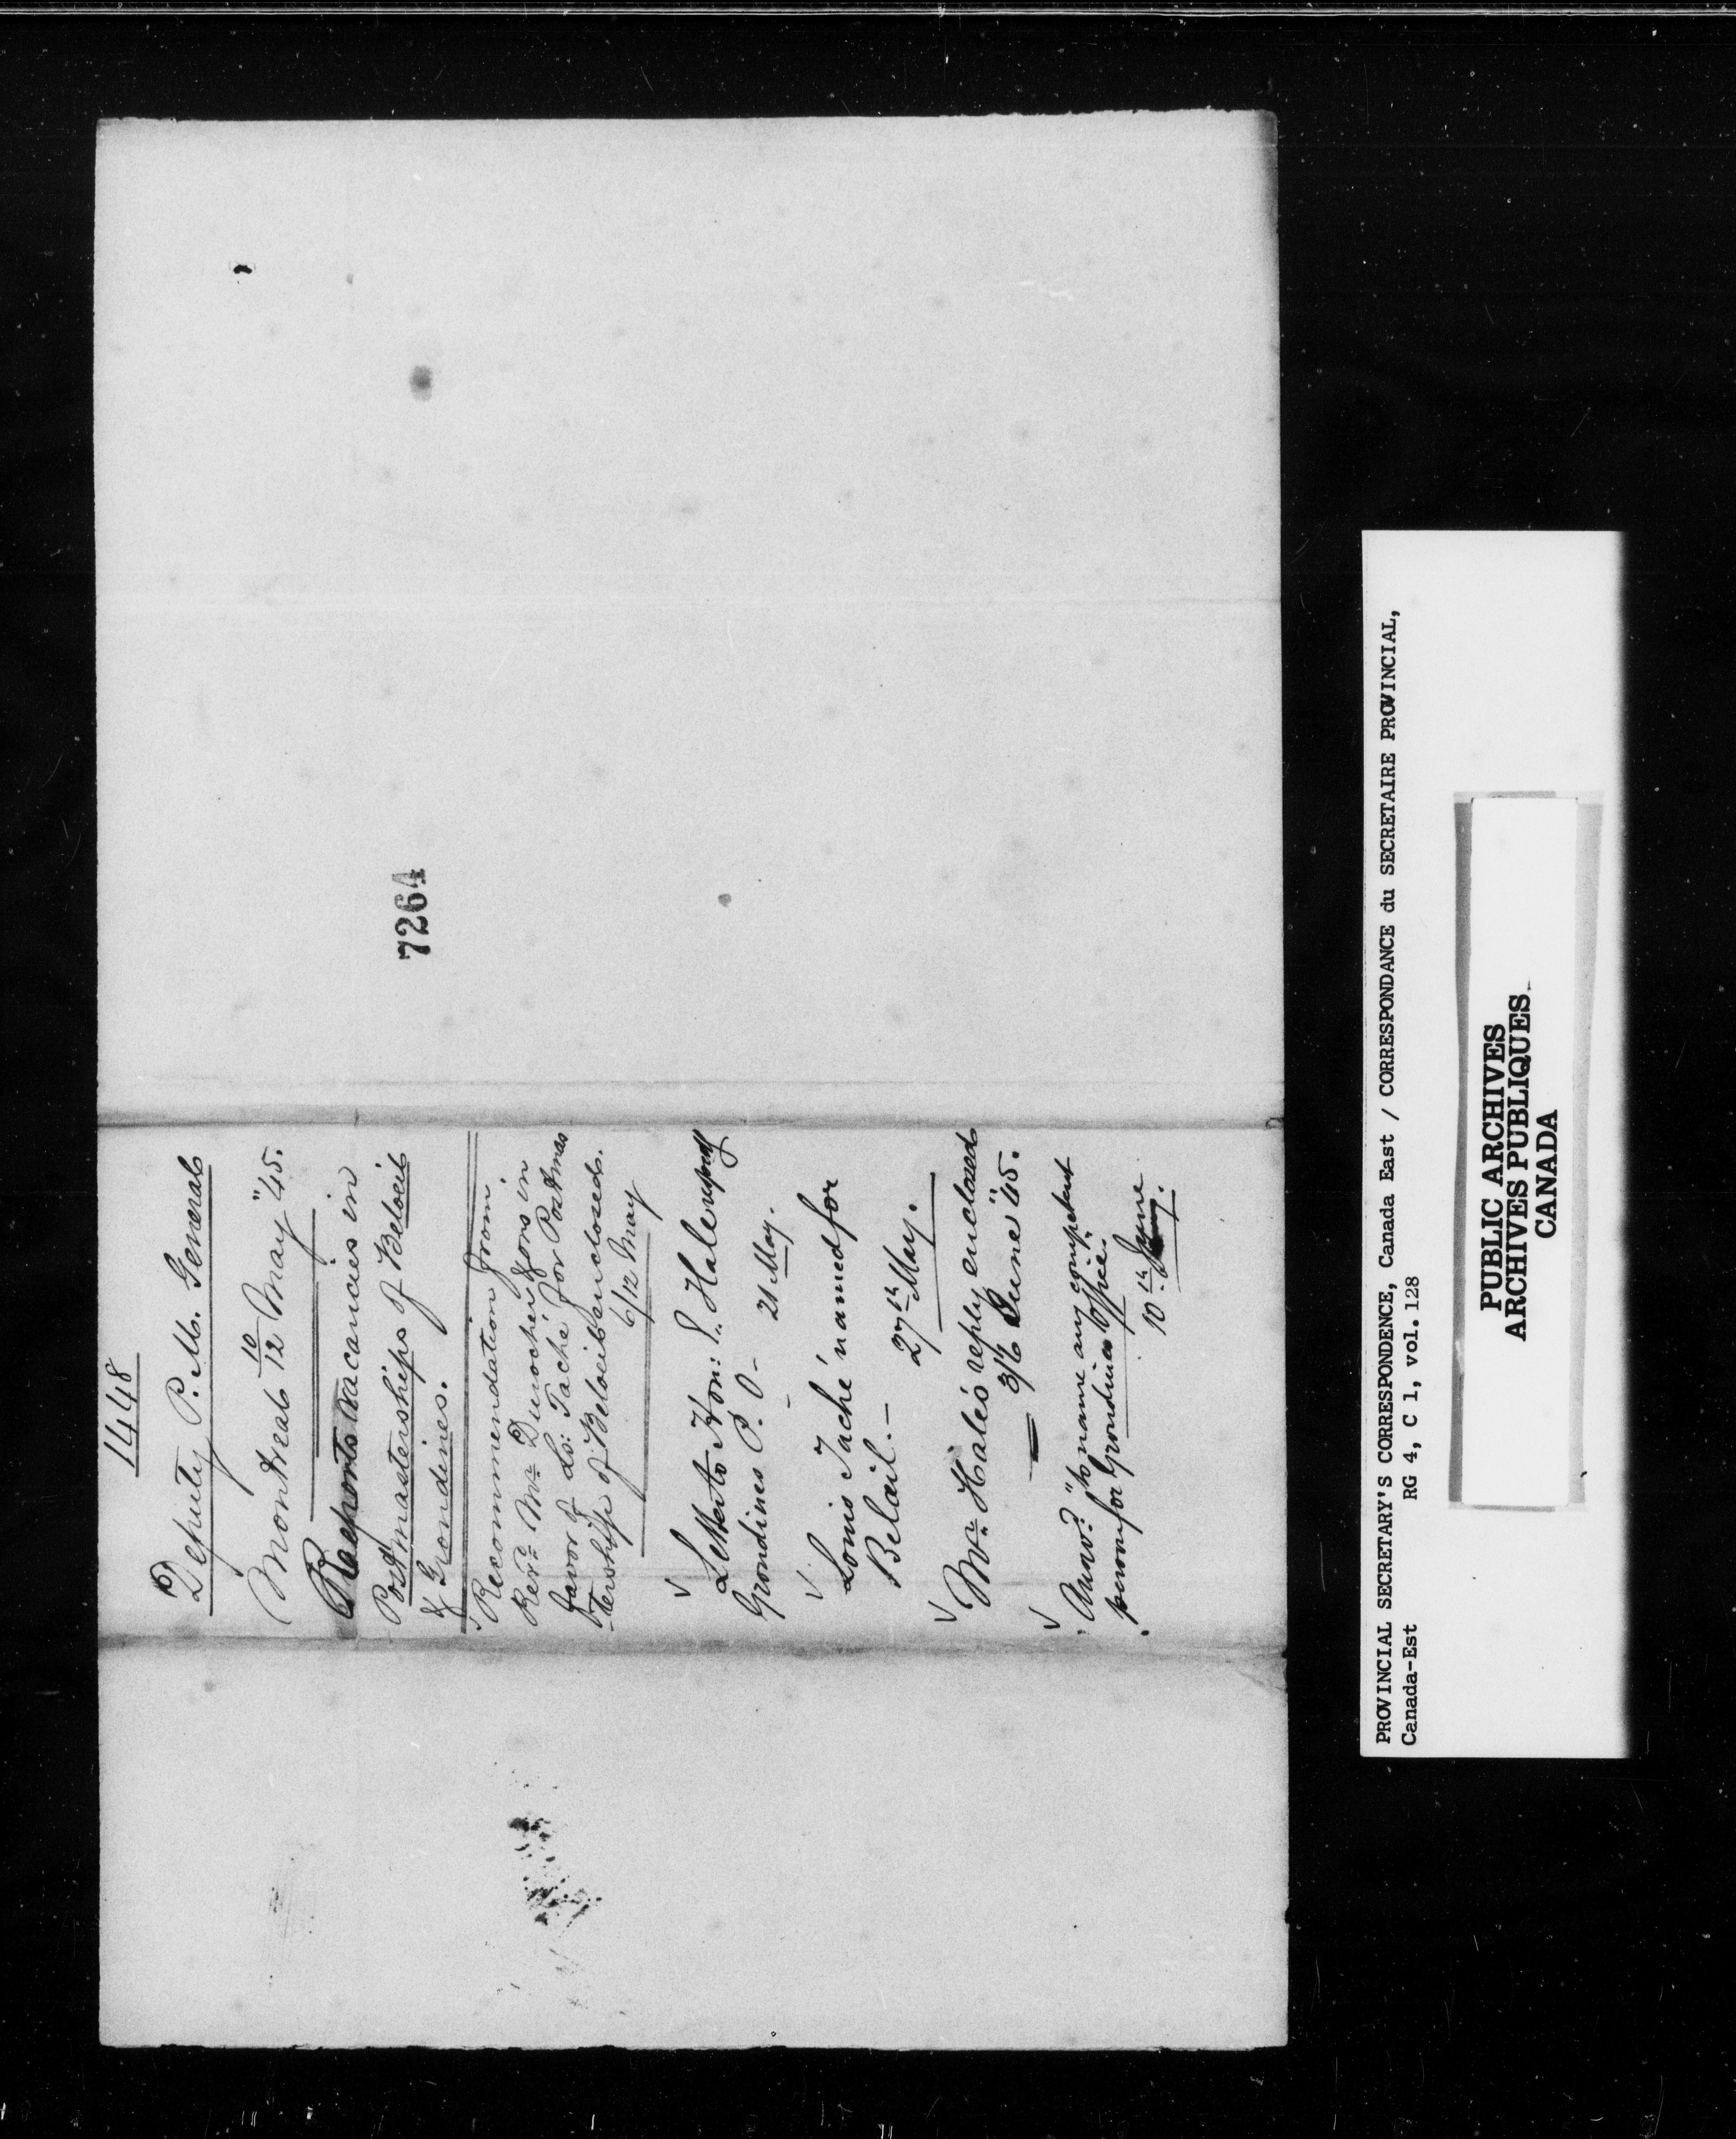 1448
Deputy P. M. General
Montreal 10/12 May "45.
Reports vacancies in
Postmasterships of Beloeil
& Grondines.
Recommendation from
Revd. Mr. Durocher &ors in
favor of Ls: Taché for Postmas
-tership of Beloeil enclosed.
6/12 May
Letter to Hon: E. Hale respectg
Grondines P. O -
21 May.
Louis Taché named for
Belœil. -
27th May.
Mr. Hale's reply enclosed
3/6 June "45.
Answd. "to name any competent
person for Grondines Office."
10th June.
7264
PROVINCIAL SECRETARY'S CORRESPONDENCE, Canada East / CORRESPONDANCE du SECRETAIRE PROVINCIAL,
Canada-Est RG 4, C 1, vol. 128
PUBLIC ARCHIVES
ARCHIVES PUBLIQUES
CANADA